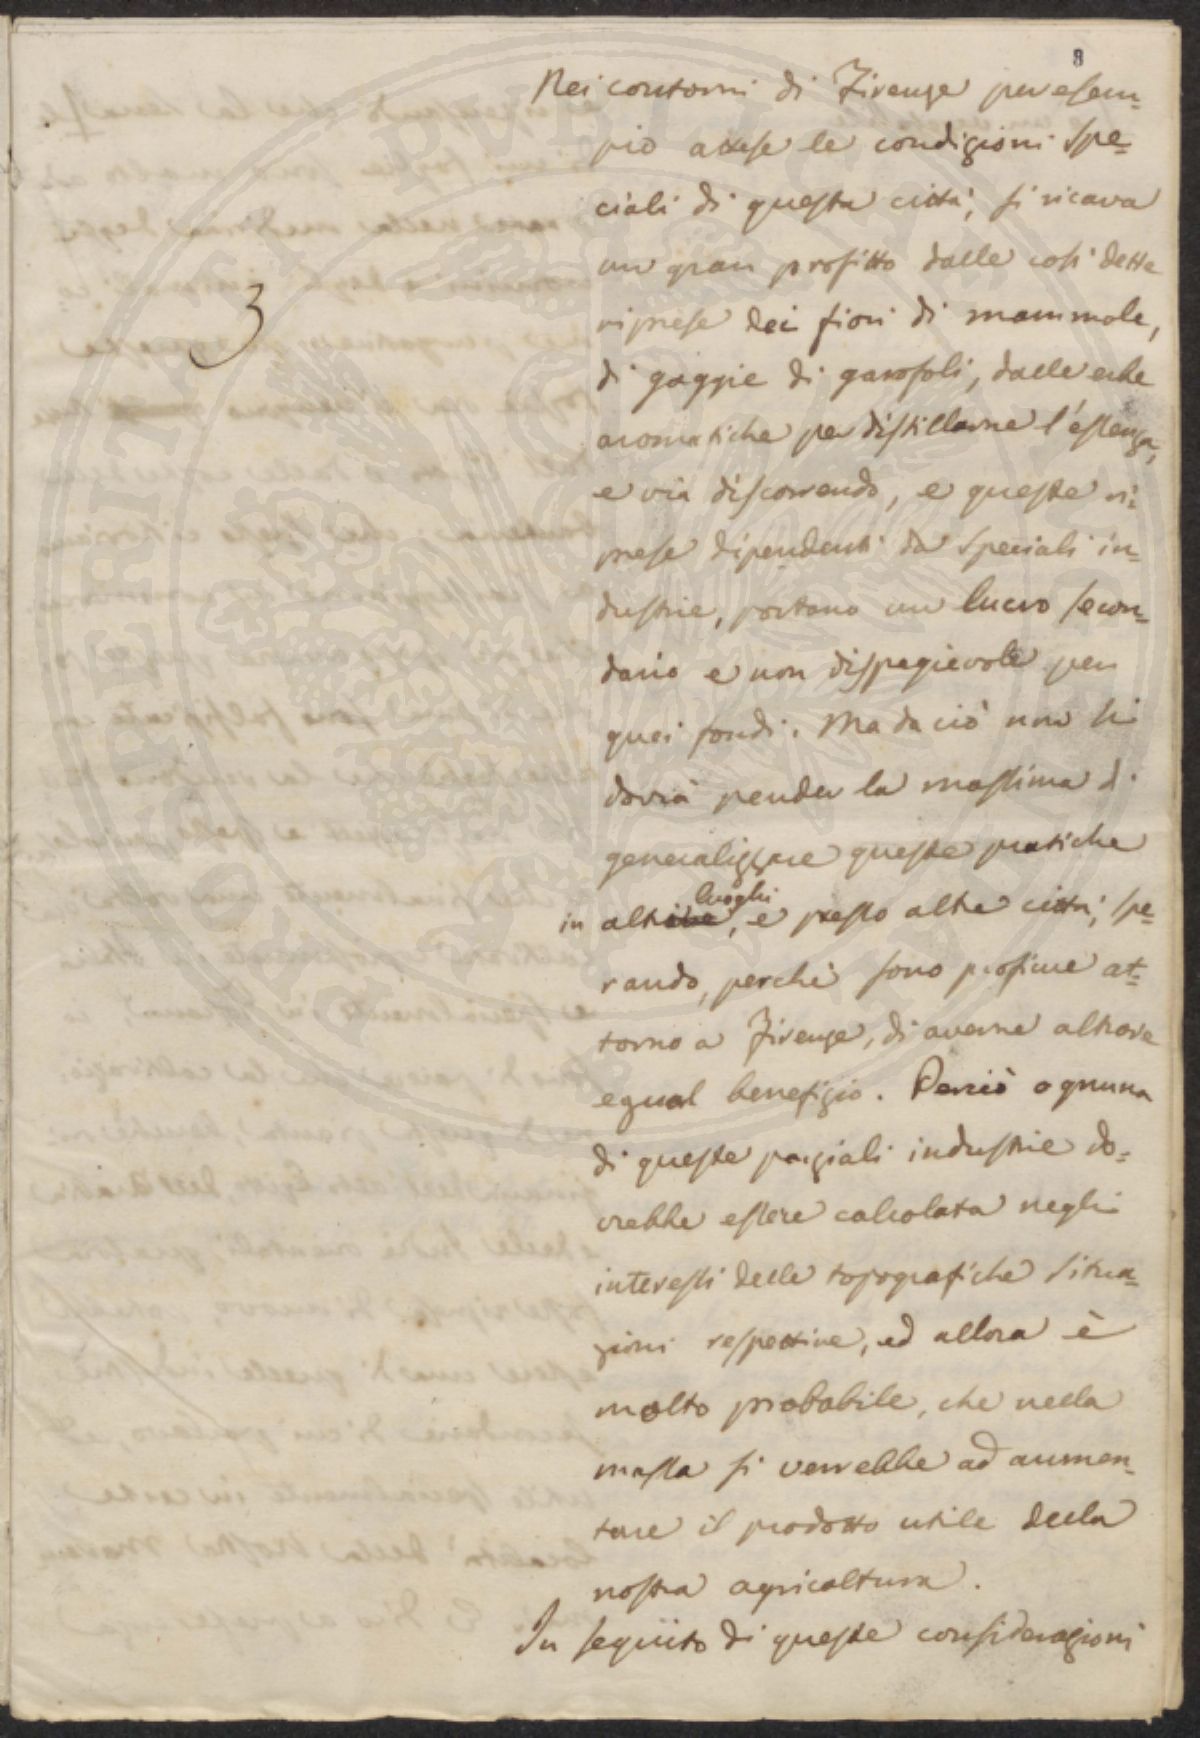 8
Nei contorni di Firenze per esem=
pio attese le condizioni spe=
ciali di questa città, si ricava
un gran profitto dalle così dette
riprese dei fiori di mammole,
3
di gaggie di garofoli, dalle erbe
aromatiche per distillarne l'essenza,
e via discorrendo, e queste ri=
prese dipendenti da speciali in=
dustrie, portano un lucro secon=
dario e non dispregievole per
quei fondi. Ma da ciò non si
dovrà prender la massima di
generalizzare queste pratiche
luoghi
in altri, e presso altre città, spe=
rando, perchè sono proficue at=
torno a Firenze, di averne altrove
egual benefizio. Perciò ognuna
di queste parziali industrie do=
vrebbe essere calcolata negli
interessi delle topografiche situa=
zioni respettive, ed allora è
molto probabile, che nella
massa si verrebbe ad aumen=
tare il prodotto utile della
nostra agricoltura.
In seguito di queste considerazioni